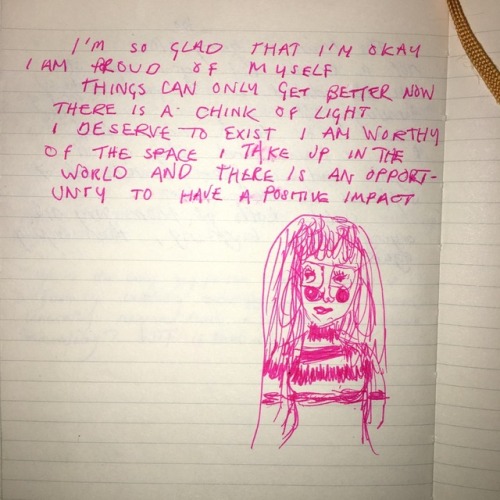 I'M SO GLAD THAT I'M OKAY
I AM PROUD OF MYSELF
THINGS CAN ONLY GET BETTER NOW
THERE IS A CHINK OF LIGHT
I DESERVE TO EXIST I AM WORTHY
OF THE SPACE I TAKE UP IN THE
WORLD AND THERE IS AN OPPORT-
UNITY TO HAVE A POSITIVE IMPACT